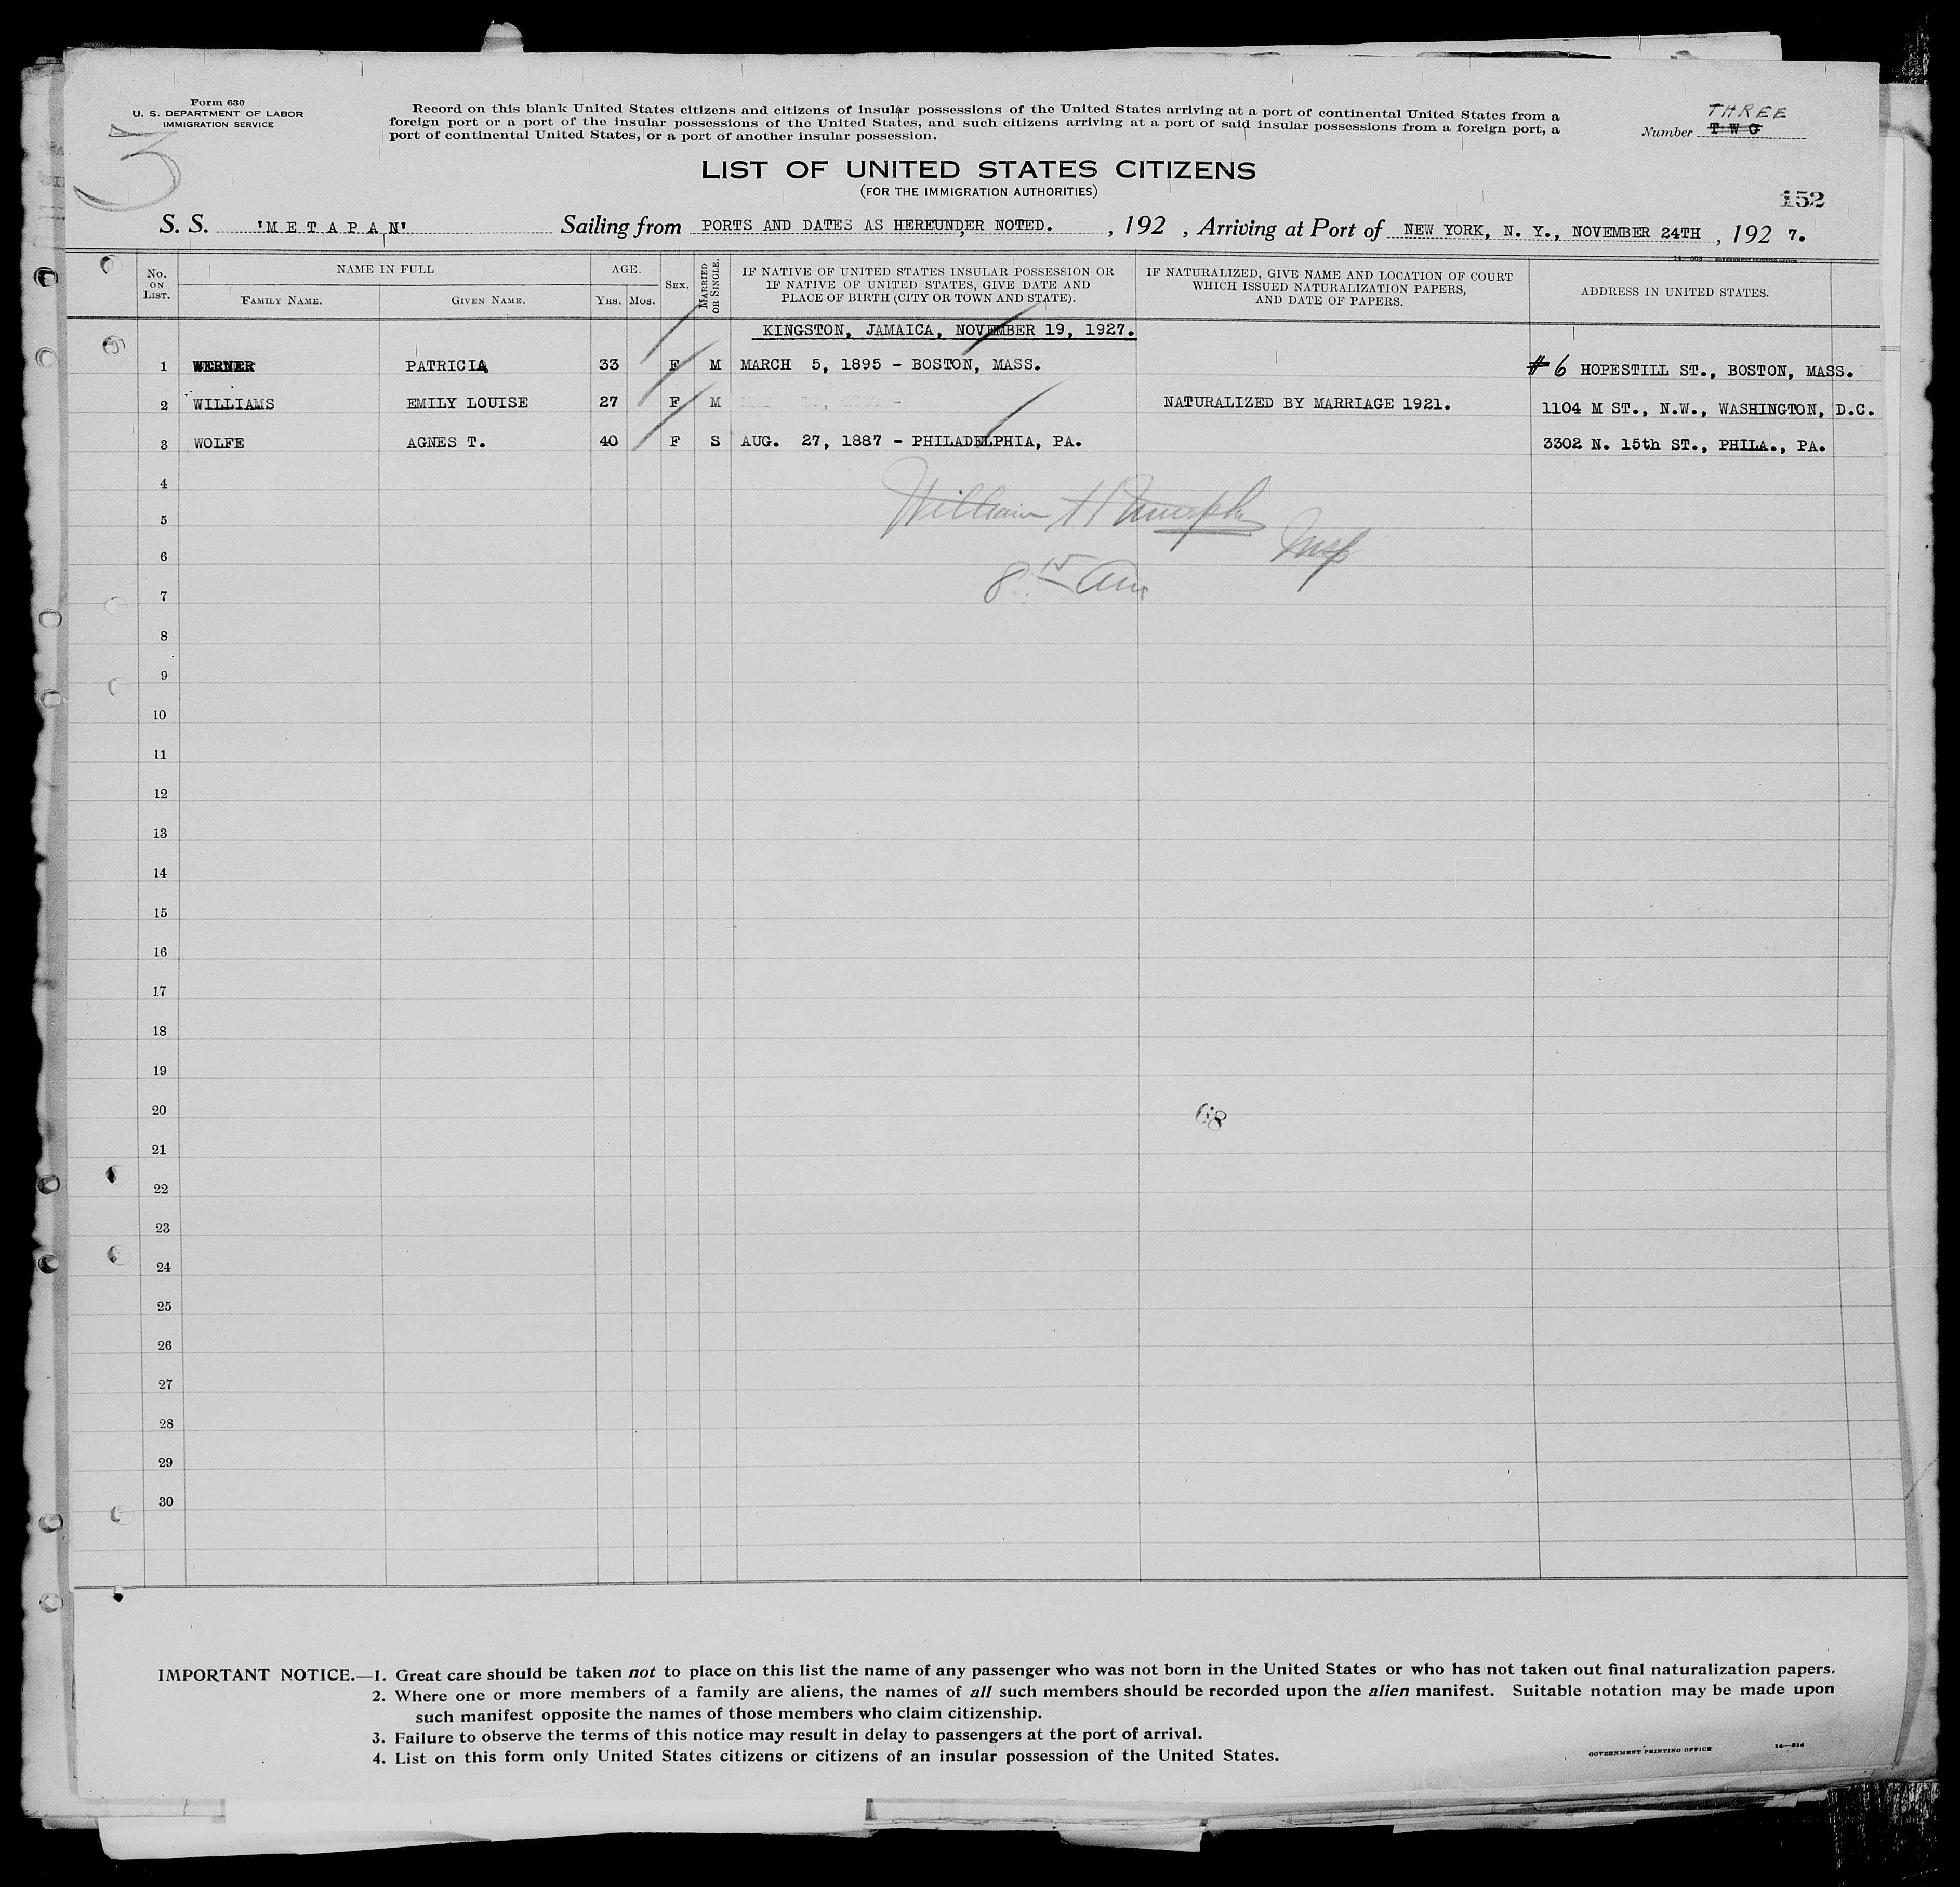 Form 630
U. S. DEPARTMENT OF LABOR
IMMIGRATION SERVICE
3
Record on this blank United States citizens and citizens of insular possessions of the United States arriving at a port of continental United States from a
foreign port or a port of the insular possessions of the United States, and such citizens arriving at a port of said insular possessions from a foreign port, a
port of continental United States, or a port of another insular possession.
THREE
Number TWO
LIST OF UNITED STATES CITIZENS
(FOR THE IMMIGRATION AUTHORITIES)
152
S. S. 'METAPAN' Sailing from PORTS AND DATES AS HEREUNDER NOTED. , 192 , Arriving at Port of NEW YORK, N. Y., NOVEMBER 24TH , 192 7.
No. ON LIST. NAME IN FULL FAMILY NAME. GIVEN NAME. AGE. YRS. MOS. SEX. MARRIED OR SINGLE. IF NATIVE OF UNITED STATES INSULAR POSSESSION OR IF NATIVE OF UNITED STATES, GIVE DATE AND PLACE OF BIRTH (CITY OR TOWN AND STATE). IF NATURALIZED, GIVE NAME AND LOCATION OF COURT WHICH ISSUED NATURALIZATION PAPERS, AND DATE OF PAPERS. ADDRESS IN UNITED STATES.
KINGSTON, JAMAICA, NOVEMBER 19, 1927.
1 WERNER PATRICIA 33 F M MARCH 5, 1895 - BOSTON, MASS. #6 HOPESTILL ST., BOSTON, MASS.
2 WILLIAMS EMILY LOUISE 27 F M NATURALIZED BY MARRIAGE 1921. 1104 M ST., N.W., WASHINGTON, D.C.
3 WOLFE AGNES T. 40 F S AUG. 27, 1887 - PHILADELPHIA, PA. 3302 N. 15th ST., PHILA., PA.
4
William H Murphy
5
Insp
6
8 15 Am
7
8
9
10
11
12
13
14
15
16
17
18
19
20
68
21
22
23
24
25
26
27
28
29
30
IMPORTANT NOTICE.—1. Great care should be taken not to place on this list the name of any passenger who was not born in the United States or who has not taken out final naturalization papers.
2. Where one or more members of a family are aliens, the names of all such members should be recorded upon the alien manifest. Suitable notation may be made upon
such manifest opposite the names of those members who claim citizenship.
3. Failure to observe the terms of this notice may result in delay to passengers at the port of arrival.
4. List on this form only United States citizens or citizens of an insular possession of the United States.
GOVERNMENT PRINTING OFFICE 14—214